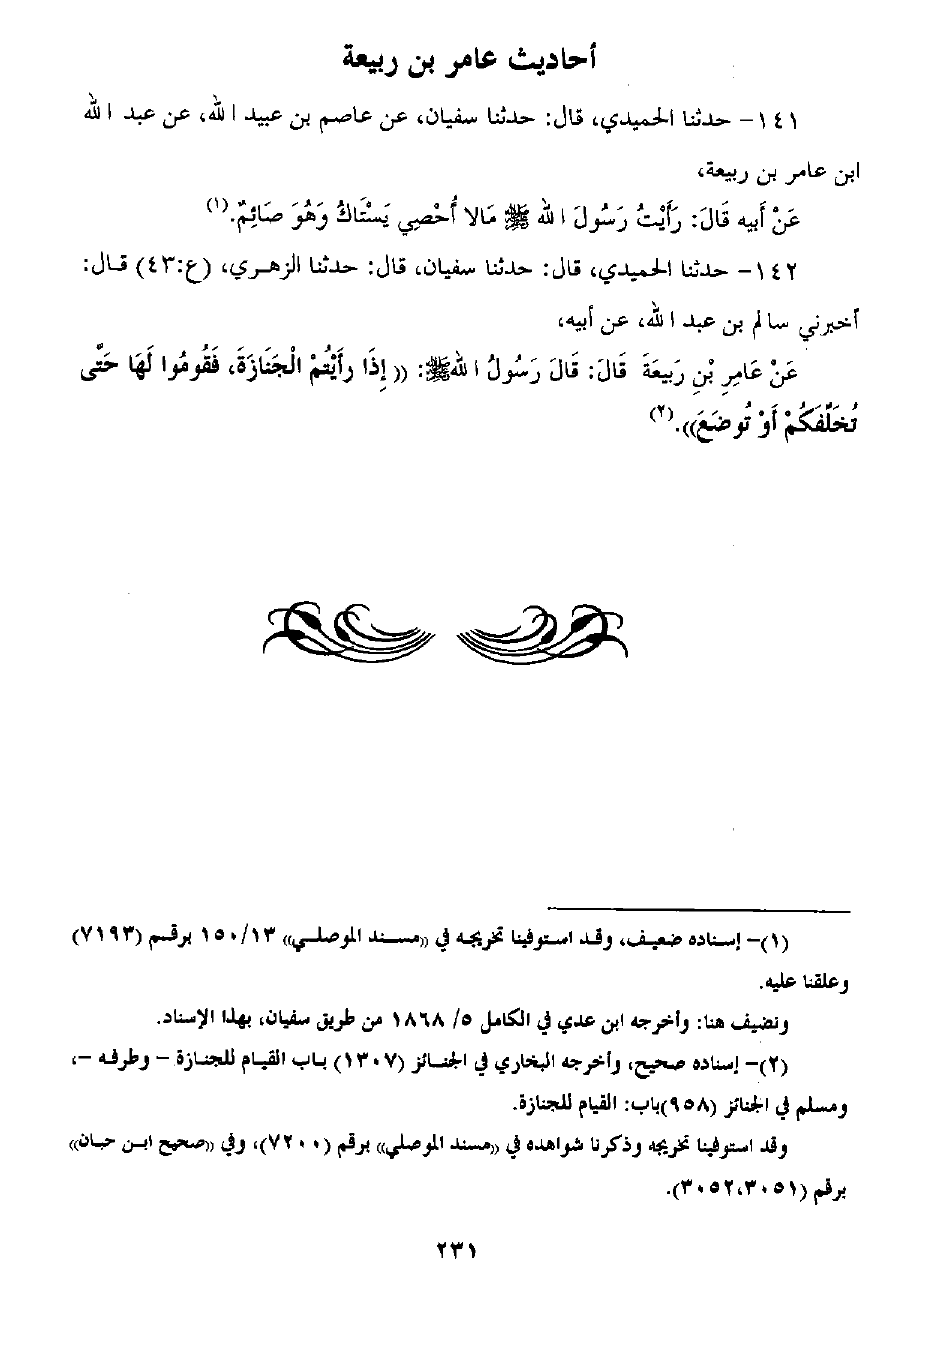 أحاديث عامر بن ربيعة
١٤١- حدثنا الحميدي، قال: حدثنا سفيان، عن عاصم بن عبيد الله، عن عبد الله
ابن عامر بن ربيعة،
عَنْ أَبيه قَالَ: رَأَيْتُ رَسُولَ الله ﷺ مَالا أُحْصِي يَسْتَاكُ وَهُوَ صَائِمٌ.(١)
١٤٢- حدثنا الحميدي، قال: حدثنا سفيان، قال: حدثنا الزهري، (ع:٤٣) قال:
أخبرني سالم بن عبد الله، عن أبيه،
عَنْ عَامِرِ بْنِ رَبِيعَةَ قَالَ: قَالَ رَسُولُ اللهﷺ: (( إِذَا رَأَيْتُمْ الْجَنَازَةَ، فَقُومُوا لَهَا حَتَّى
تُخَلِّفَكُمْ أَوْ تُوضَعَ)).(٢)
(١)- إسناده ضعيف، وقد استوفينا تخريجه في «مسند الموصلي» ١٥٠/١٣ برقم (٧١٩٣)
وعلقنا عليه.
ونضيف هنا: وأخرجه ابن عدي في الكامل ٥/ ١٨٦٨ من طريق سفيان، بهذا الإسناد.
(٢)- إسناده صحيح، وأخرجه البخاري في الجنائز (١٣٠٧) باب القيام للجنازة - وطرفه -،
ومسلم في الجنائز (٩٥٨)باب: القيام للجنازة.
وقد استوفينا تخريجه وذكرنا شواهده في «مسند الموصلي» برقم (٧٢٠٠)، وفي «صحيح ابن حبان»
برقم (٣٠٥١،٣٠٥٢).
٢٣١